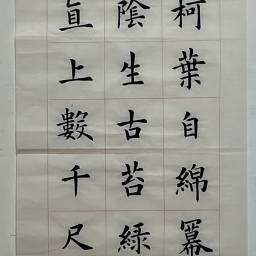 柯葉自綿冪
陰生古苔綠
直上數千尺